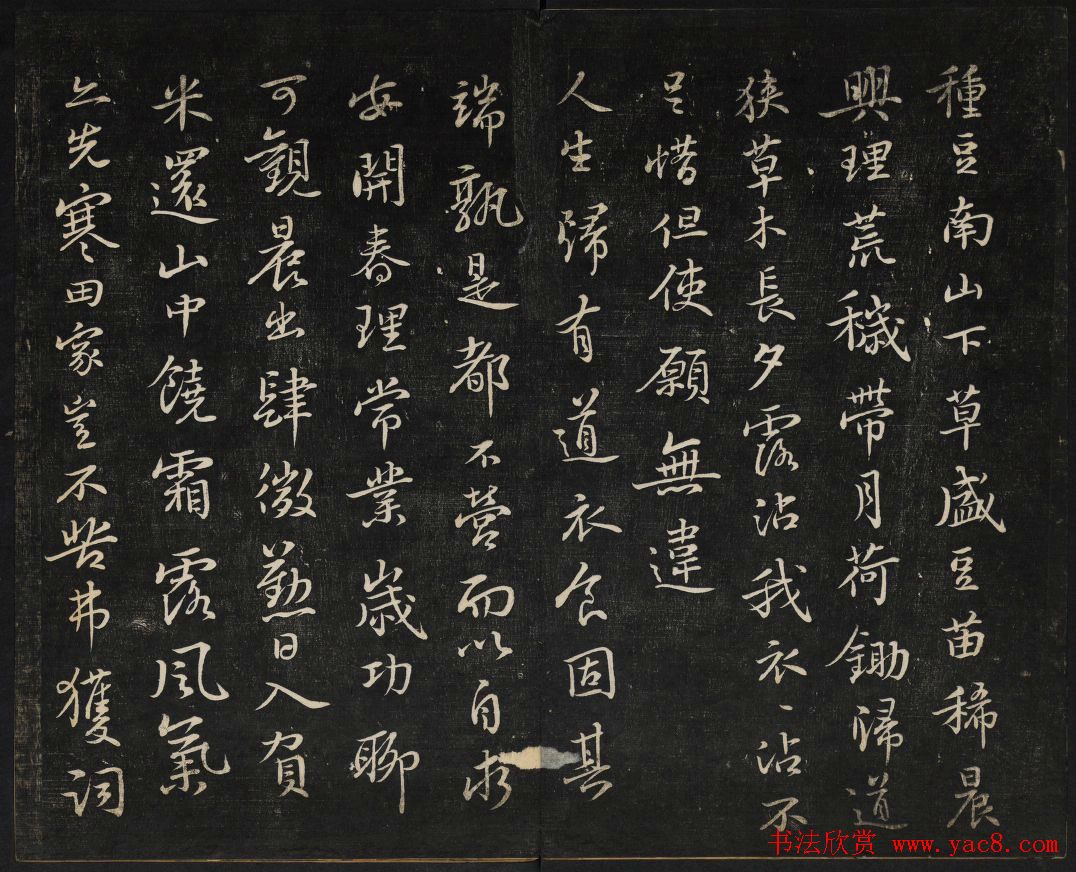 種豆南山下草盛豆苗稀晨
興理荒穢帶月荷鋤歸道
狹草木長夕露沾我衣丶沾不
足惜但使願無違
人生歸有道衣食固其
端孰是都不營而以自求
安開春理常業歲功聊
可觀晨出肆微勤日入負
米還山中饒霜露風氣
亦先寒田家豈不苦弗獲詞
书法欣赏 www.yac8.com